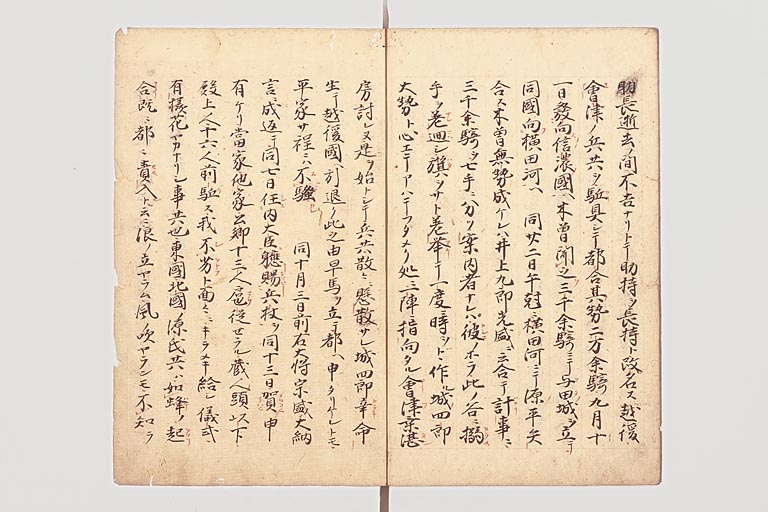 助長逝去ノ間不吉ナリトテ助持ヲ長持ト改名ス越後
會津ノ兵共ヲ駈具シテ都合其勢二万余騎九月十
一日發向信濃國ヘ木曽聞之三千余騎ニテ与田城ヲ立テ
同國向横田河ヘ 同廿二日午尅横田河ニテ源平矢
合ス木曽無勢成ケレハ井上九郎光盛ニ云合テ計事ニ
三千余騎ヲ七手ニ分ツ案内者ナレハ彼ノホラ此ノ谷搦
手ヲ巻廻シ旗ヲサト巻挙テ一度ニ時ヲトト作ル城四郎
大勢ト心エテアハテフタメク処ニ陣指向タル會津乗湛
房討ヌ是ヲ始トシテ兵共散々ニ懸散サレ城四郎幸命
生テ越後國ヘ引退ク此之由早馬ヲ立テ都ヘ申タリケレトモ
平家サ程ニハ不騒 同十月三日前右大将宗盛大納
言ニ成返テ同七日任内大臣聴賜兵杖ヲ同十三日賀申
有ケリ當家他家公卿十三人扈従セラル蔵人頭以下
殿上人十六人前駈ス我不劣ト面々ニキラメキ給シ儀式
有様花ヤカナリシ事共也東國北國源氏共ハ如蜂ノ起
合既ニ都ニ責入ト云ニ浪ノ立ヤラム風吹ヤラムモ不知ラ